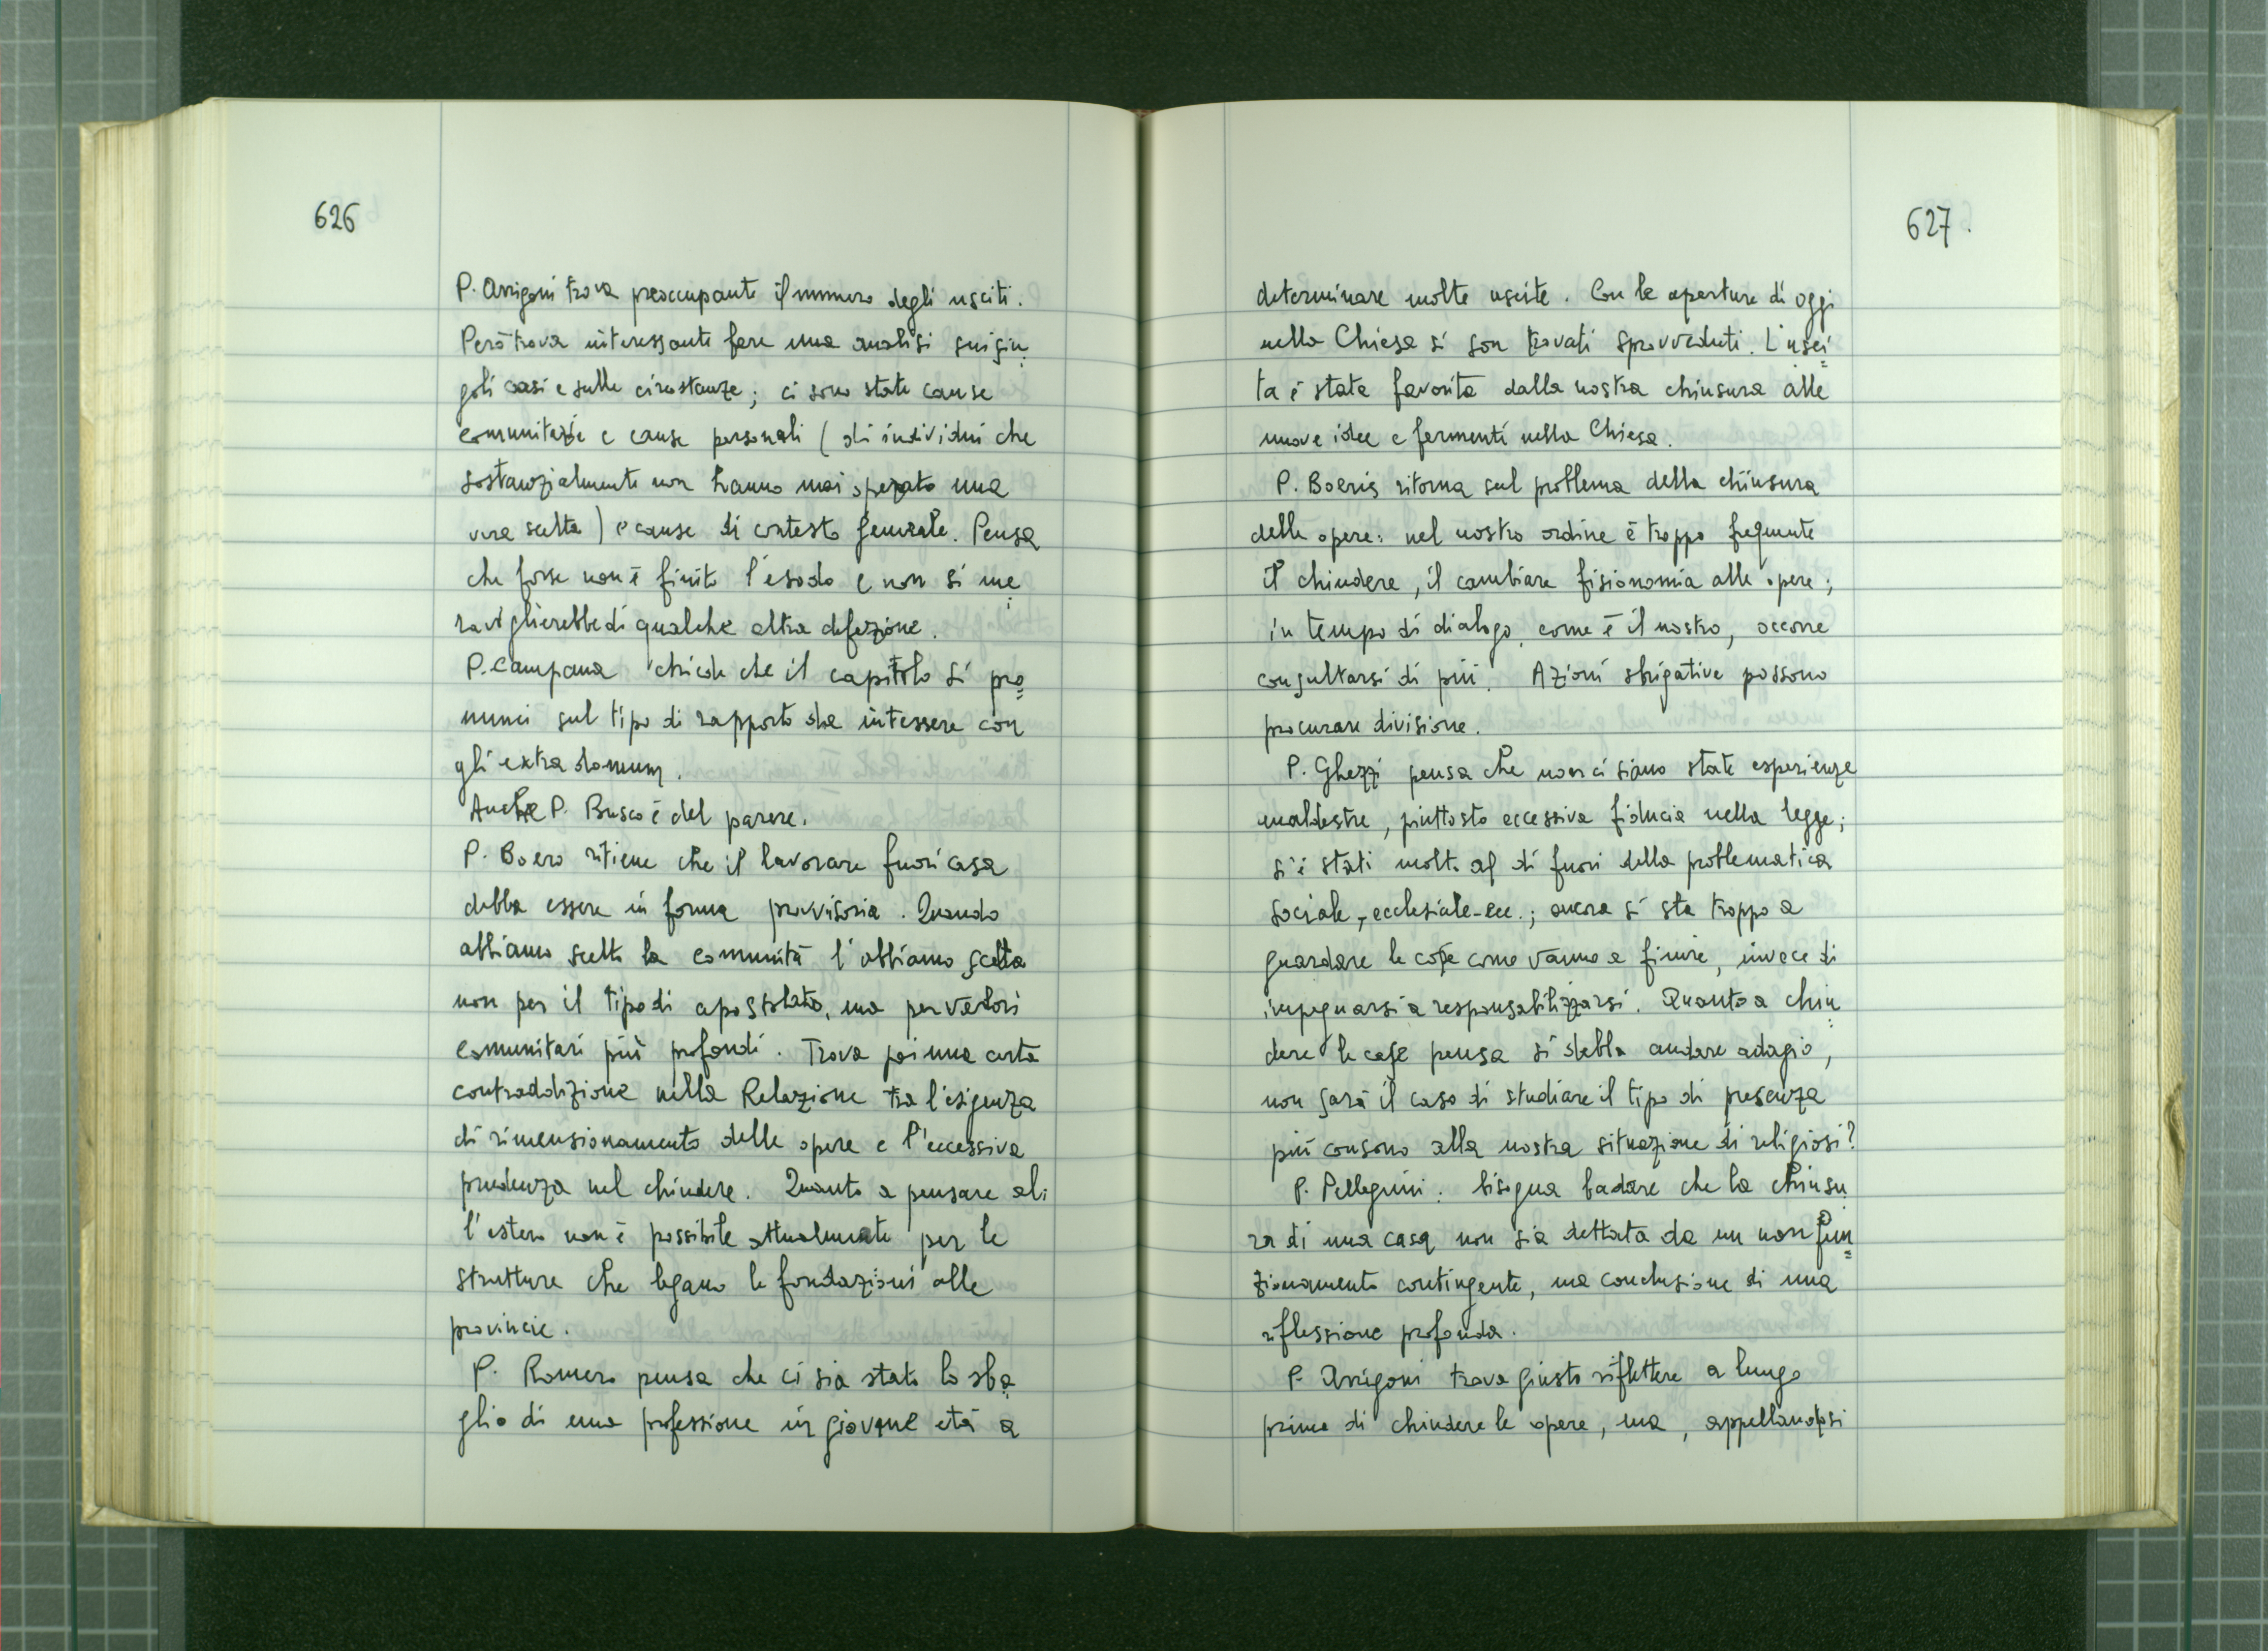 626
P. Arrigoni trova preoccupante il numero degli usciti.
Però trova interessante fare una analisi sui sin
goli casi e sulle circostanze; ci sono state cause
comunitarie e cause personali (di individui che
sostanzialmente non hanno mai operato una
vera scelta) e cause di contesto generale. Pensa
che forse non è finito l'esodo e non si me
raviglierebbe di qualche altra defezione.
P. Campana chiede che il capitolo si pro=
nunci sul tipo di rapporto da intessere con
gli extra domum.
Anche P. Busco è del parere.
P. Boero ritiene che il lavorare fuori casa
debba essere in forma provvisoria. Quando
abbiamo scelto la comunità l'abbiamo scelta
non per il tipo di apostolato, ma per valori
comunitari più profondi. Trova poi una certa
contraddizione nella Relazione tra l'esigenza
di rimensionamento delle opere e l'eccessiva
prudenza nel chiudere. Quanto a pensare al
l'estero non è possibile attualmente per le
strutture che legano le fondazioni alle
provincie.
P. Romero pensa che ci sia stato lo sba
glio di una professione in giovane età a
627.
determinare molte uscite. Con le aperture di oggi
nella Chiesa si son trovati sprovveduti. L'usci=
ta è stata favorita dalla nostra chiusura alle
nuove idee e fermenti nella Chiesa.
P. Boeris ritorna sul problema della chiusura
delle opere: nel nostro ordine è troppo frequente
il chiudere, il cambiare fisionomia alle opere;
in tempo di dialogo, come è il nostro, occorre
consultarsi di più. Azioni sbrigative possono
procurare divisione.
P. Ghezzi pensa che non ci siano state esperienze
maldestre, piuttosto eccessiva fiducia nella legge;
si è stati molto al di fuori della problematica
sociale, ecclesiale-ecc.; ancora si sta troppo a
guardare le cose come vanno a finire, invece di
impegnarsi a responsabilizzarsi. Quanto a chiu
dere le case pensa si debba andare adagio,
non sarà il caso di studiare il tipo di presenza
più consono alla nostra situazione di religiosi?
P. Pellegrini: bisogna badare che la chiusu
ra di una casa non sia dettata da un non fun=
zionamento contingente, ma conclusione di una
riflessione profonda.
P. Arrigoni trova giusto riflettere a lungo
prima di chiudere le opere, ma, appellandosi